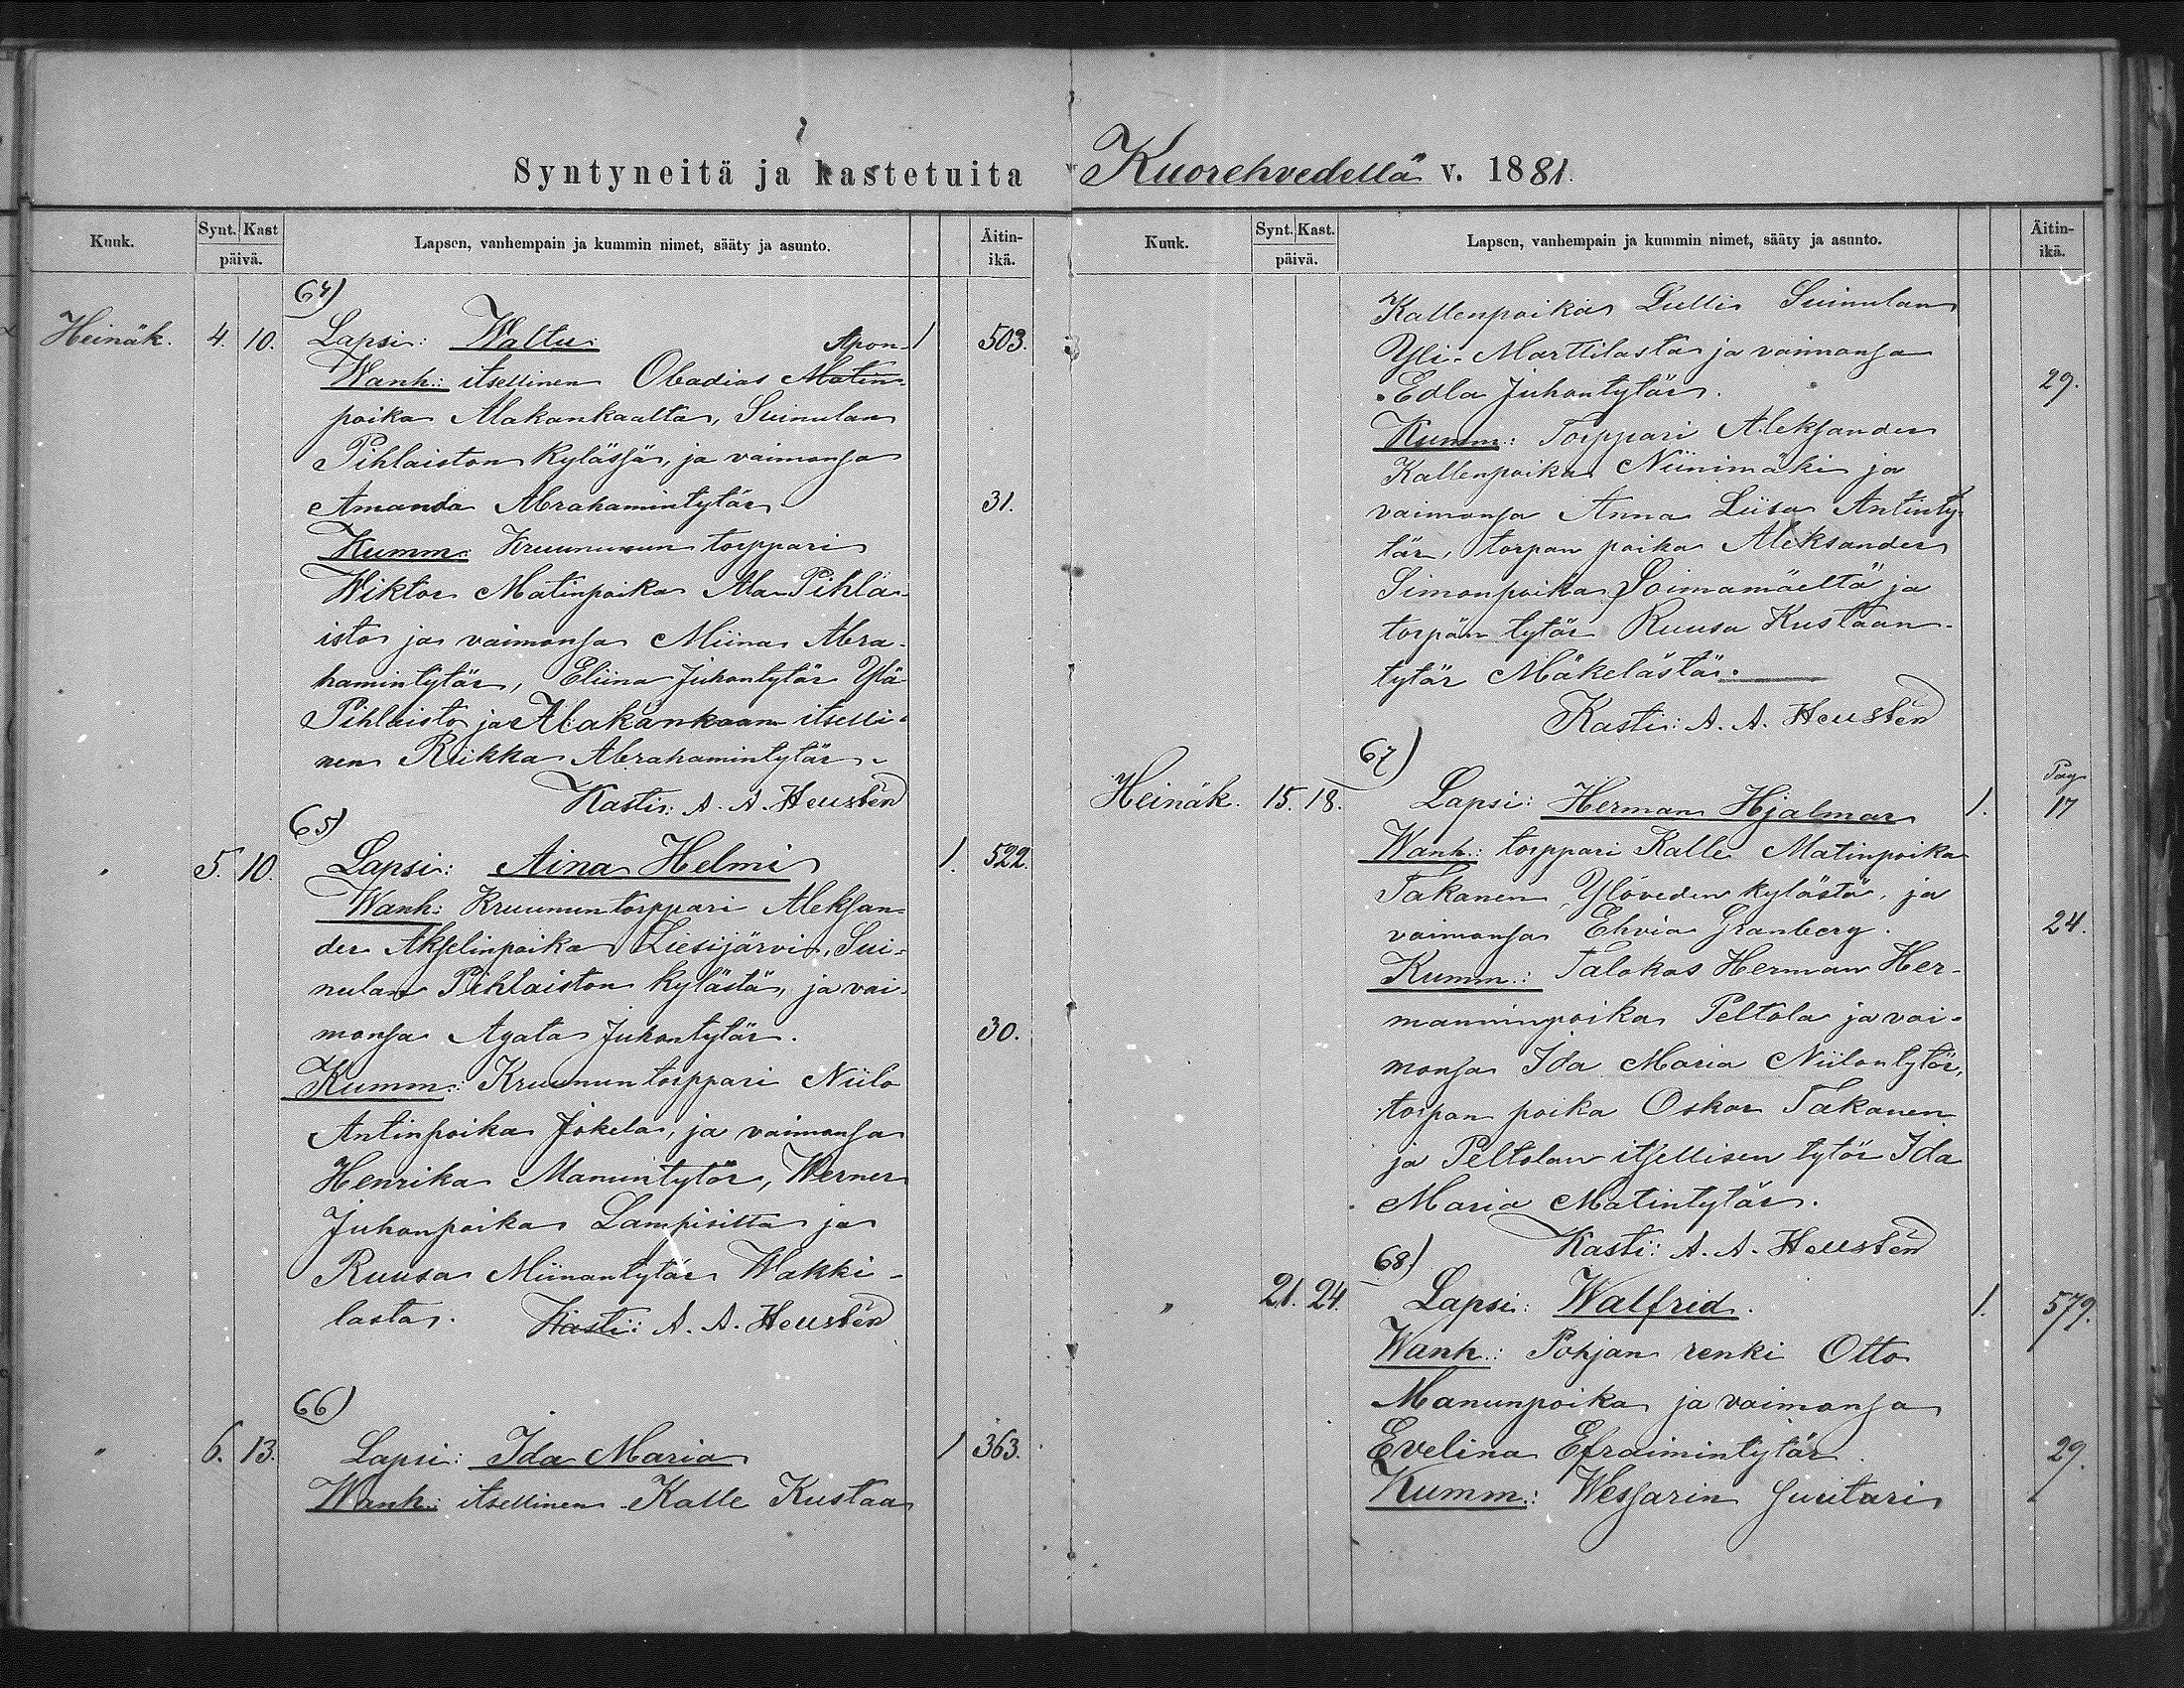 Syntyneitä ja kastetuita
Kuuk. Synt. Kast päivä. Lapsen, vanhempain ja kummin nimet, sääty ja asunto. Äitin-ikä.
64)
Heinäk. 4. 10. Lapsi: Waltu Apon- 1 503.
Wanh: itsellinen Obadias Matin-
poika Alakankaalta, Suinulan
Pihlaiston kylässä, ja vaimonsa
Amanda Abrahamintytär 31.
Kumm: Kruunuun torppari
Wiktor Matinpoika Ala-Pihla-
isto ja vaimonsa Miina Abra-
hamintytär, Eliina Juhontytär Ylä
Pihlaisto ja Alakankaan itselli-
nen Riikka Abrahamintytär.
Kasti: A. A. Heusten
65)
" 5. 10. Lapsi: Aina Helmi 1. 522.
Wanh: Kruunun torppari Aleksan-
der Akselinpoika Liesijärvi, Sui-
nulan Pihlaiston kylästä, ja vai-
monsa Agata Juhontytär. 30.
Kumm: Kruunun torppari Niilo
Antinpoika Jokela, ja vaimonsa
Henrika Manuntytär, Werner
Juhonpoika Lampisilta ja
Ruusa Miinantytär Wakki-
lasta. Kasti: A. A. Heusten
66)
" 6. 13. Lapsi: Ida Maria 1 363.
Wanh: itsellinen Kalle Kustaa
Kuorehvedellä v. 1881.
Kuuk. Synt. Kast. päivä. Lapsen, vanhempain ja kummin nimet, sääty ja asunto. Äitin-ikä.
Kallenpoika Lulli Suinulan
Yli-Marttilasta ja vaimonsa
Edla Juhontytär. 29.
Kumm: Torppari Aleksander
Kallenpoika Niinimäki ja
vaimonsa Anna Liisa Antinty-
tär, torpan poika Aleksander
Simonpoika Soimamäeltä ja
torpan tytär Ruusa Kustaan-
tytär Mäkelästä.
Kasti: A. A. Heusten
67) Pag
Heinäk. 15. 18. Lapsi: Herman Hjalmar 1. 17
Wanh: torppari Kalle Matinpoika
Takanen Ylöveden kylästä, ja
vaimonsa Elvia Granberg. 24.
Kumm.: Talokas Herman Her-
manninpoika Peltola ja vai-
monsa Ida Maria Niilontytär,
torpan poika Oskar Takanen
ja Peltolan itsellisen tytär Ida
Maria Matintytär.
Kasti: A. A. Heusten
68)
" 21. 24. Lapsi: Walfrid. 1. 579.
Wanh.: Pohjan renki Otto
Manunpoika ja vaimonsa
Evelina Efraimintytär. 29.
Kumm.: Wessarin